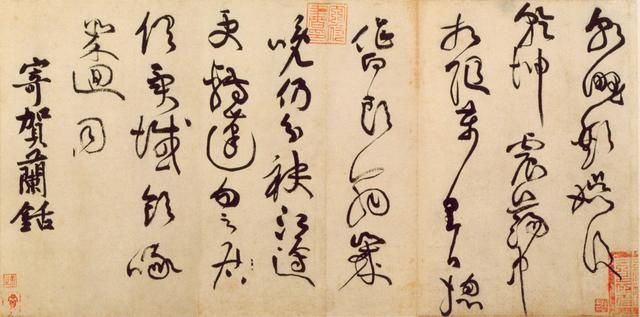 朝野歡娛後
乾坤震蕩中
相隨萬里日總
作白頭翁歲
晚仍分袂江邊
更轉蓬勿云
俱異域飲啄
幾迴同
寄賀蘭銛